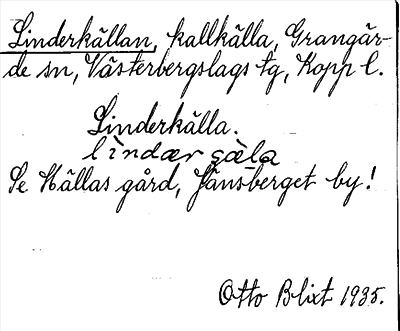 Linderkällan, kallkälla, Grangär-
de sn, Västerbergslags tg, Kopp l.
Linderkälla.
lìndær ɕæ̀la
Se Källas gård, Jänsberget by!
Otto Blixt 1935.